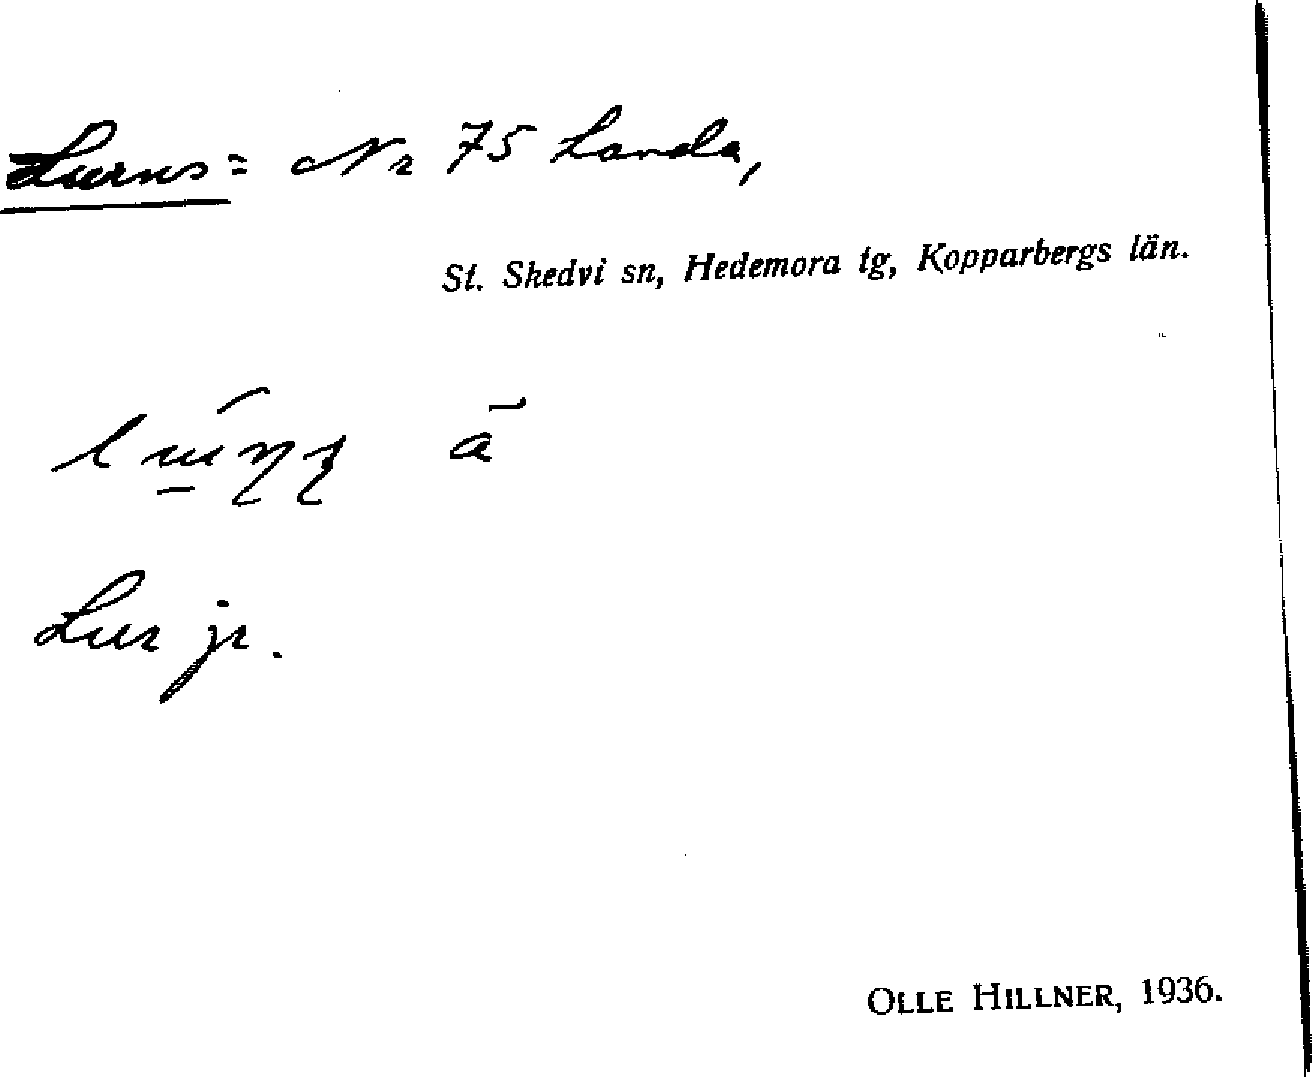 Lurns= Nr 75 Landa,
St. Skedvi sn, Hedemora tg, Kopparbergs län.
Lur jr.
OLLE HILLNER, 1936.